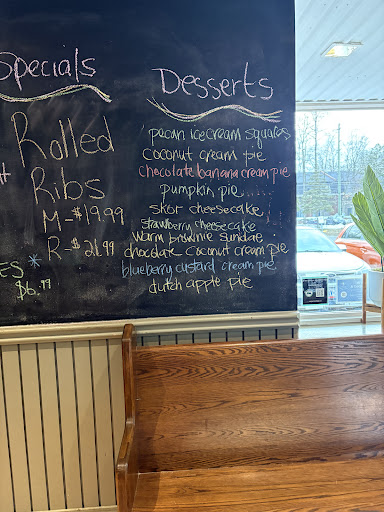 Specials
Rolled
Ribs
M-$19.99
R-$21.99
ES *
$6.99
Desserts
pecan ice cream squares
coconut cream pie
chocolate banana cream pie
pumpkin pie
skor cheesecake
strawberry cheesecake
warm brownie sundae
chocolate coconut cream pie
blueberry custard cream pie
dutch apple pie